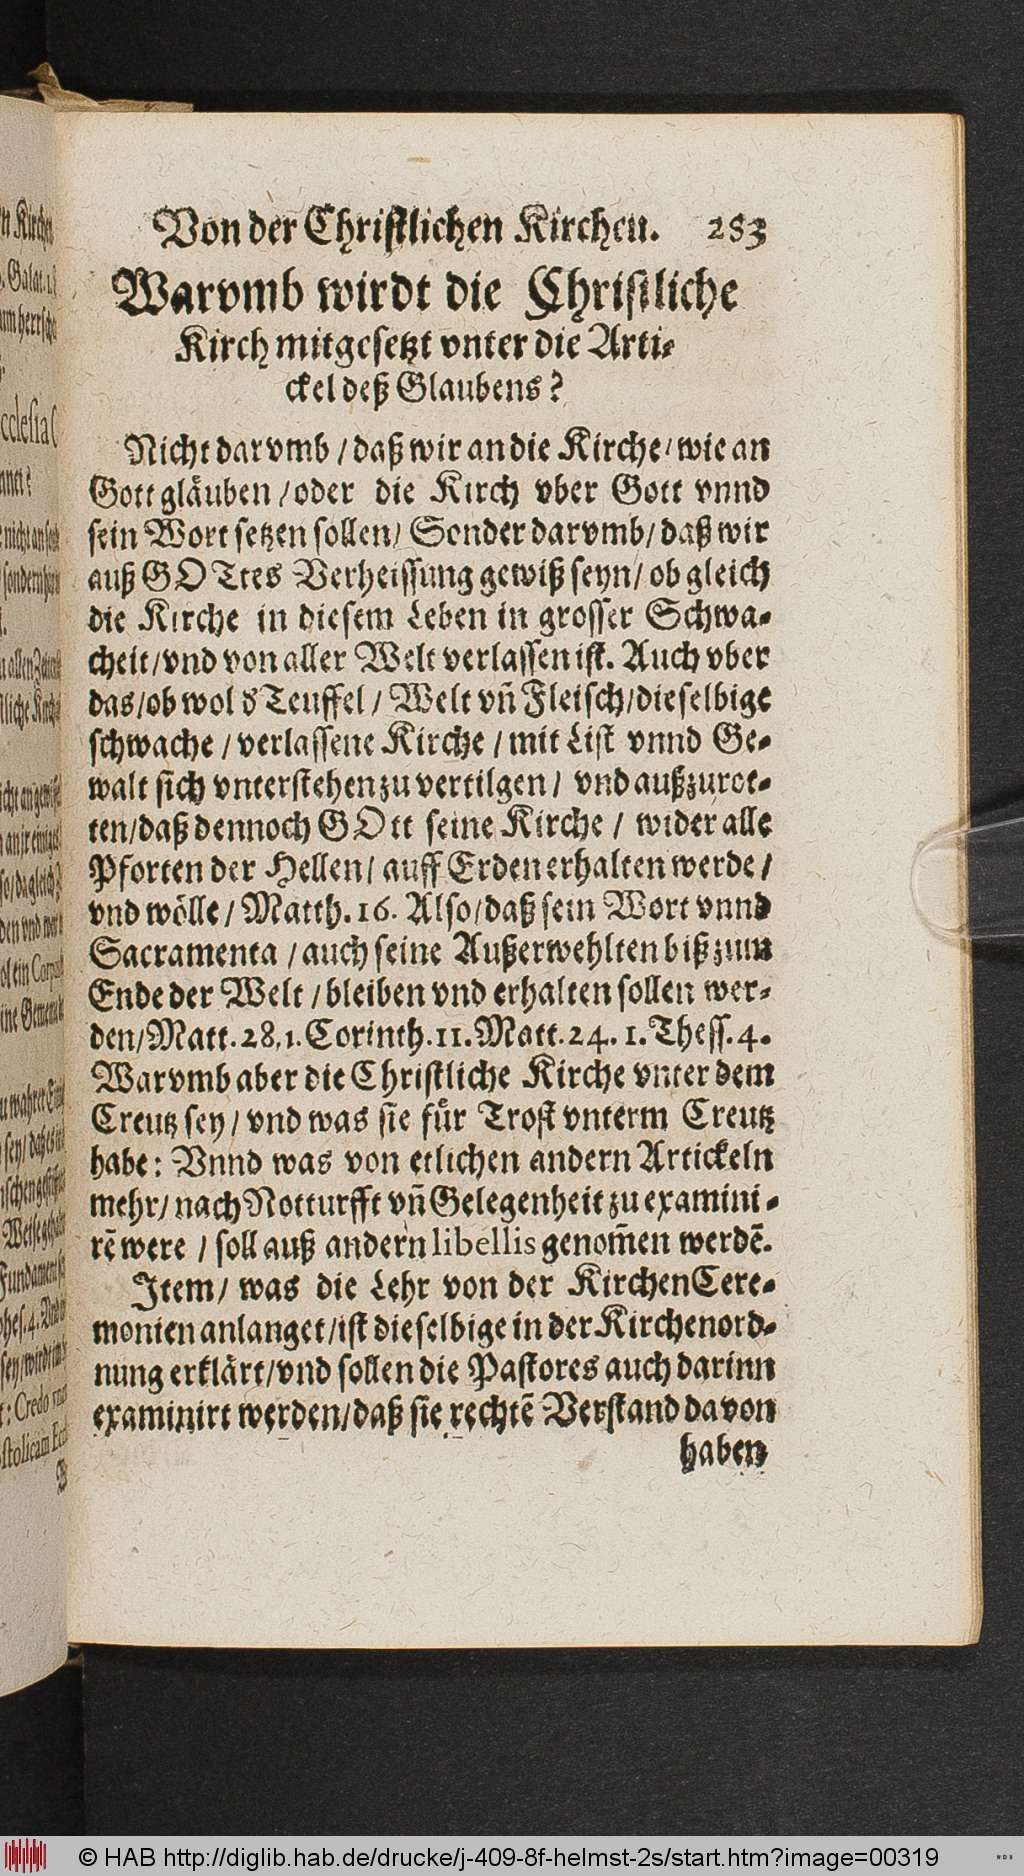 Von der Christlichen Kirchen. 283
Warvmb wirdt die Christliche
Kirch mitgesetzt vnter die Arti-
ckel deß Glaubens?
Nicht darvmb / daß wir an die Kirche / wie an
Gott gläuben / oder die Kirch vber Gott vnnd
sein Wort setzen sollen / Sonder darvmb / daß wir
auß GOTtes Verheissung gewiß seyn / ob gleich
die Kirche in diesem Leben in grosser Schwa-
cheit / vnd von aller Welt verlassen ist. Auch vber
das / ob wol d' Teuffel / Welt vñ Fleisch / dieselbige
schwache / verlassene Kirche / mit List vnnd Ge-
walt sich vnterstehen zu vertilgen / vnd außzurot-
ten / daß dennoch GOtt seine Kirche / wider alle
Pforten der Hellen / auff Erden erhalten werde /
vnd wölle / Matth. 16. Also / daß sein Wort vnnd
Sacramenta / auch seine Außerwehlten biß zum
Ende der Welt / bleiben vnd erhalten sollen wer-
den / Matt. 28. 1. Corinth. 11. Matt. 24. 1. Thess. 4.
Warvmb aber die Christliche Kirche vnter dem
Creutz sey / vnd was sie für Trost vnterm Creutz
habe: Vnnd was von etlichen andern Artickeln
mehr / nach Notturfft vñ Gelegenheit zu examini-
rē were / soll auß andern libellis genom̄en werdē.
Item / was die Lehr von der Kirchen Cere-
monien anlanget / ist dieselbige in der Kirchenord-
nung erklärt / vnd sollen die Pastores auch darinn
examinirt werden / daß sie rechtē Verstand davon
haben
© HAB http://diglib.hab.de/drucke/j-409-8f-helmst-2s/start.htm?image=00319